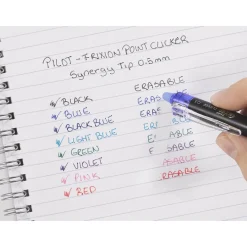 PILOT - FRIXION POINT CLICKER
Synergy Tip 0.5mm
ERASABLE
✓ BLACK ERAS
✓ BLUE ERAS
✓ BLACK BLUE ERA
✓ LIGHT BLUE ER
✓ GREEN E ABLE
✓ VIOLET F SABLE
✓ PINK ASABLE
✓ RED RASABLE